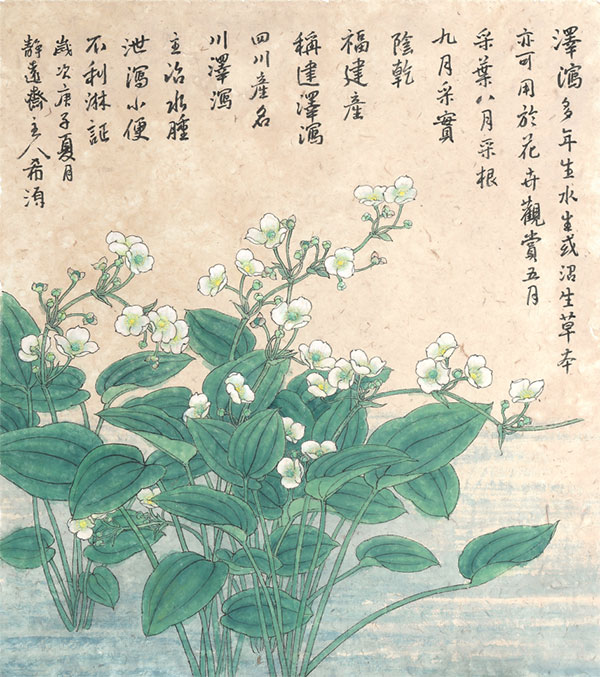 澤瀉多年生水生或沼生草本
亦可用於花卉觀賞五月
采葉八月采根
九月采實
陰乾
福建產
稱建澤瀉
四川產名
川澤瀉
主治水腫
泄瀉小便
不利淋証
歲次庚子夏月
靜遠齋主人希湏